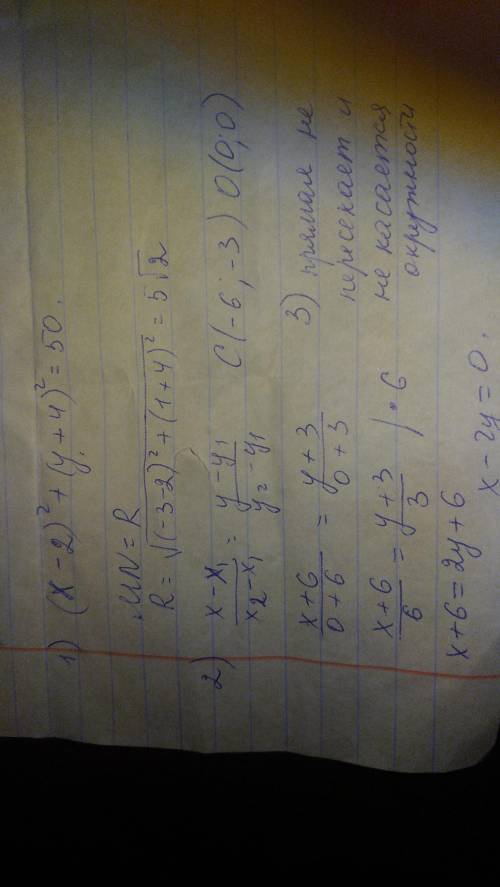 1) (x-2)² + (y+4)² = 50.
MN = R
R = √((-3-2)² + (1+4)²) = 5√2
2) (x-x₁)/(x₂-x₁) = (y-y₁)/(y₂-y₁) C(-6; -3) O(0; 0)
(x+6)/(0+6) = (y+3)/(0+3)
(x+6)/6 = (y+3)/3 / · 6
x+6 = 2y+6
x - 2y = 0.
3) прямая не
пересекает и
не касается
окружности